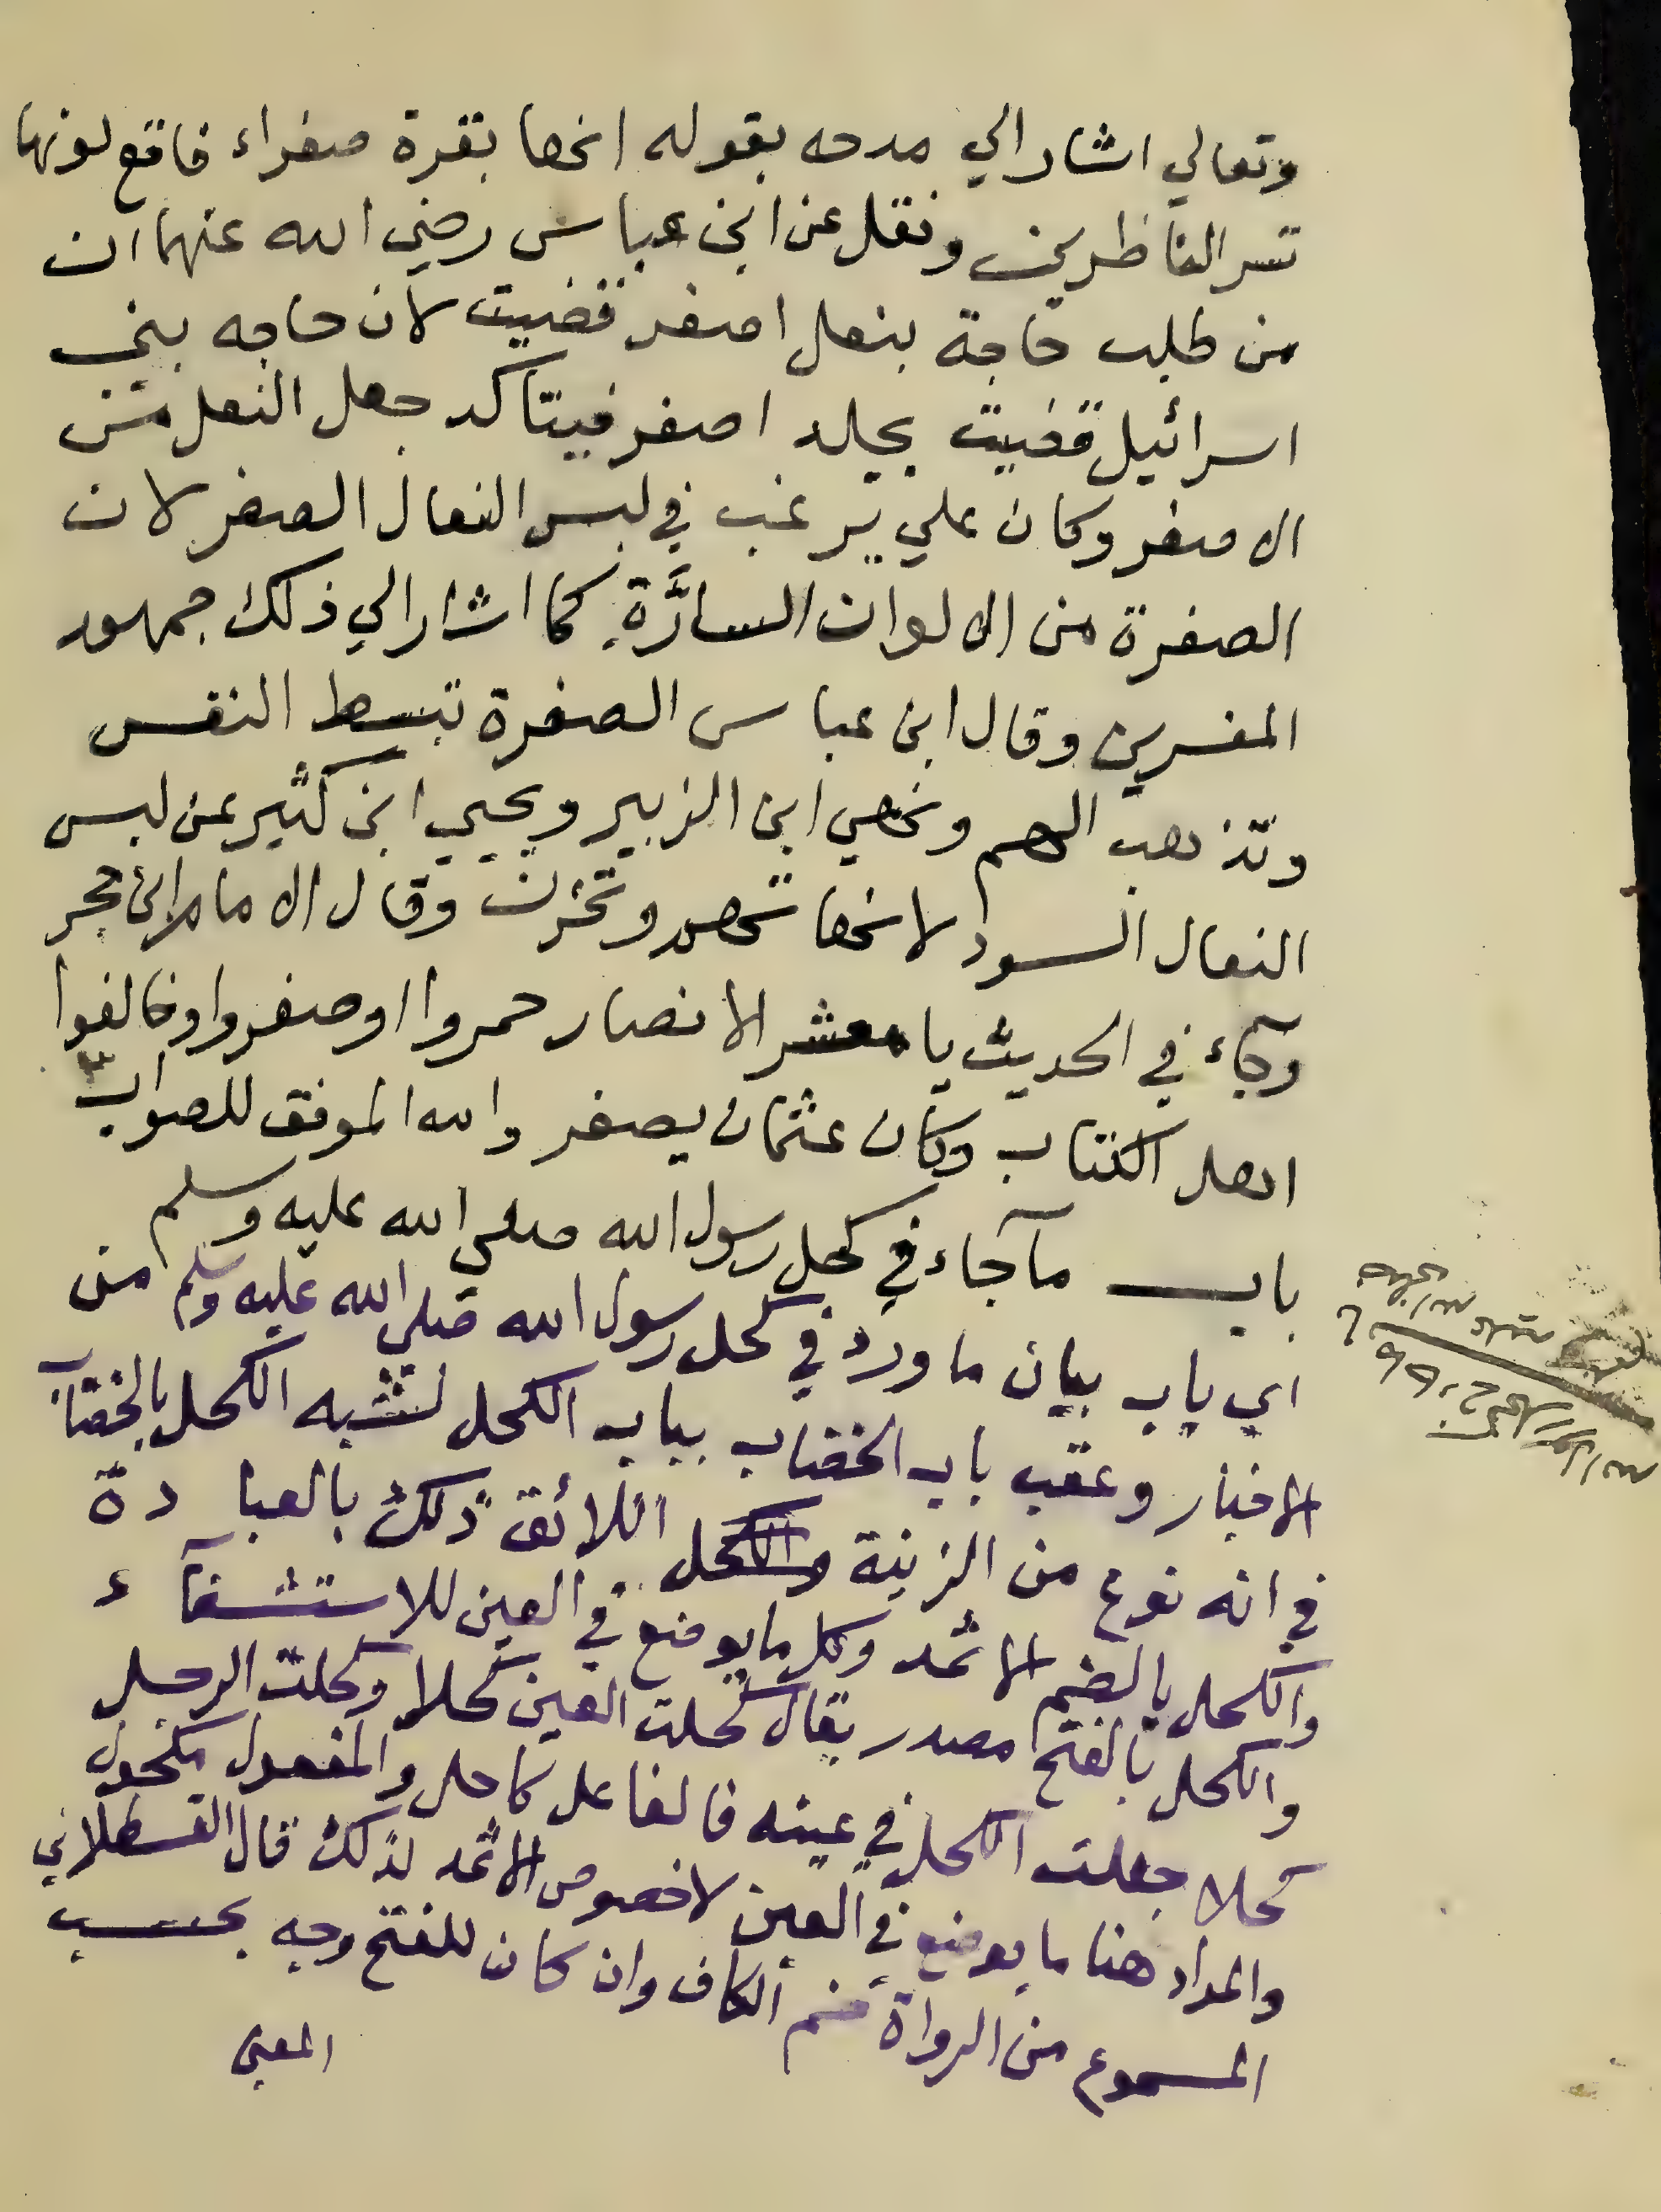 وتعالي اشار الي مدحه بقوله انها بقرة صفراء فاقع لونها
تسر الناظرين ونقل عن ابن عباس رضي الله عنهما ان
من طلب حاجة بنعل اصفر قضيت لان حاجه بني
اسرائيل قضيت بجلد اصفر فيتاكد جعل النعل من
الاصفر وكان علي يرغب في لبس النعال الصفر لان
الصفرة من الالوان السارَّة كما اشار الي ذلك جمهور
المفسرين وقال ابن عباس الصفرة تبسط النفس
وتذهب الهم ونهي ابن الزبير ويحيي ابن كثير عن لبس
النعال السود لانها تهم وتحزن وقال الامام ابن حجر
وجآء في الحديث يا معشر الانصار حمروا اوصفروا وخالفوا
اهل الكتاب وكان عثمان يصفر والله الموفق للصواب
باب مآ جاء في كحل رسول الله صلي الله عليه وسلم
اي باب بيان ما ورد في كحل رسول الله صلي الله عليه وسلم من
الاخبار وعقب باب الخضاب بباب الكحل لشبه الكحل بالخضاب
في انه نوع من الزينة والكحل اللائق ذلك بالعبادة
والكحل بالضم الاثمد وكل ما يوضع في العين للاستشفآء
والكحل بالفتح مصدر يقال كحلت العين كحلا وكحلت الرجل
كحلا جعلت الكحل في عينه فالفاعل كاحل والمفعول مكحول
والمراد هنا ما يوضع في العين لا خصوص الاثمد لذلك قال القسطلاني
المسموع من الرواة ضم الكاف وان كان للفتح وجه بحسب
المعني